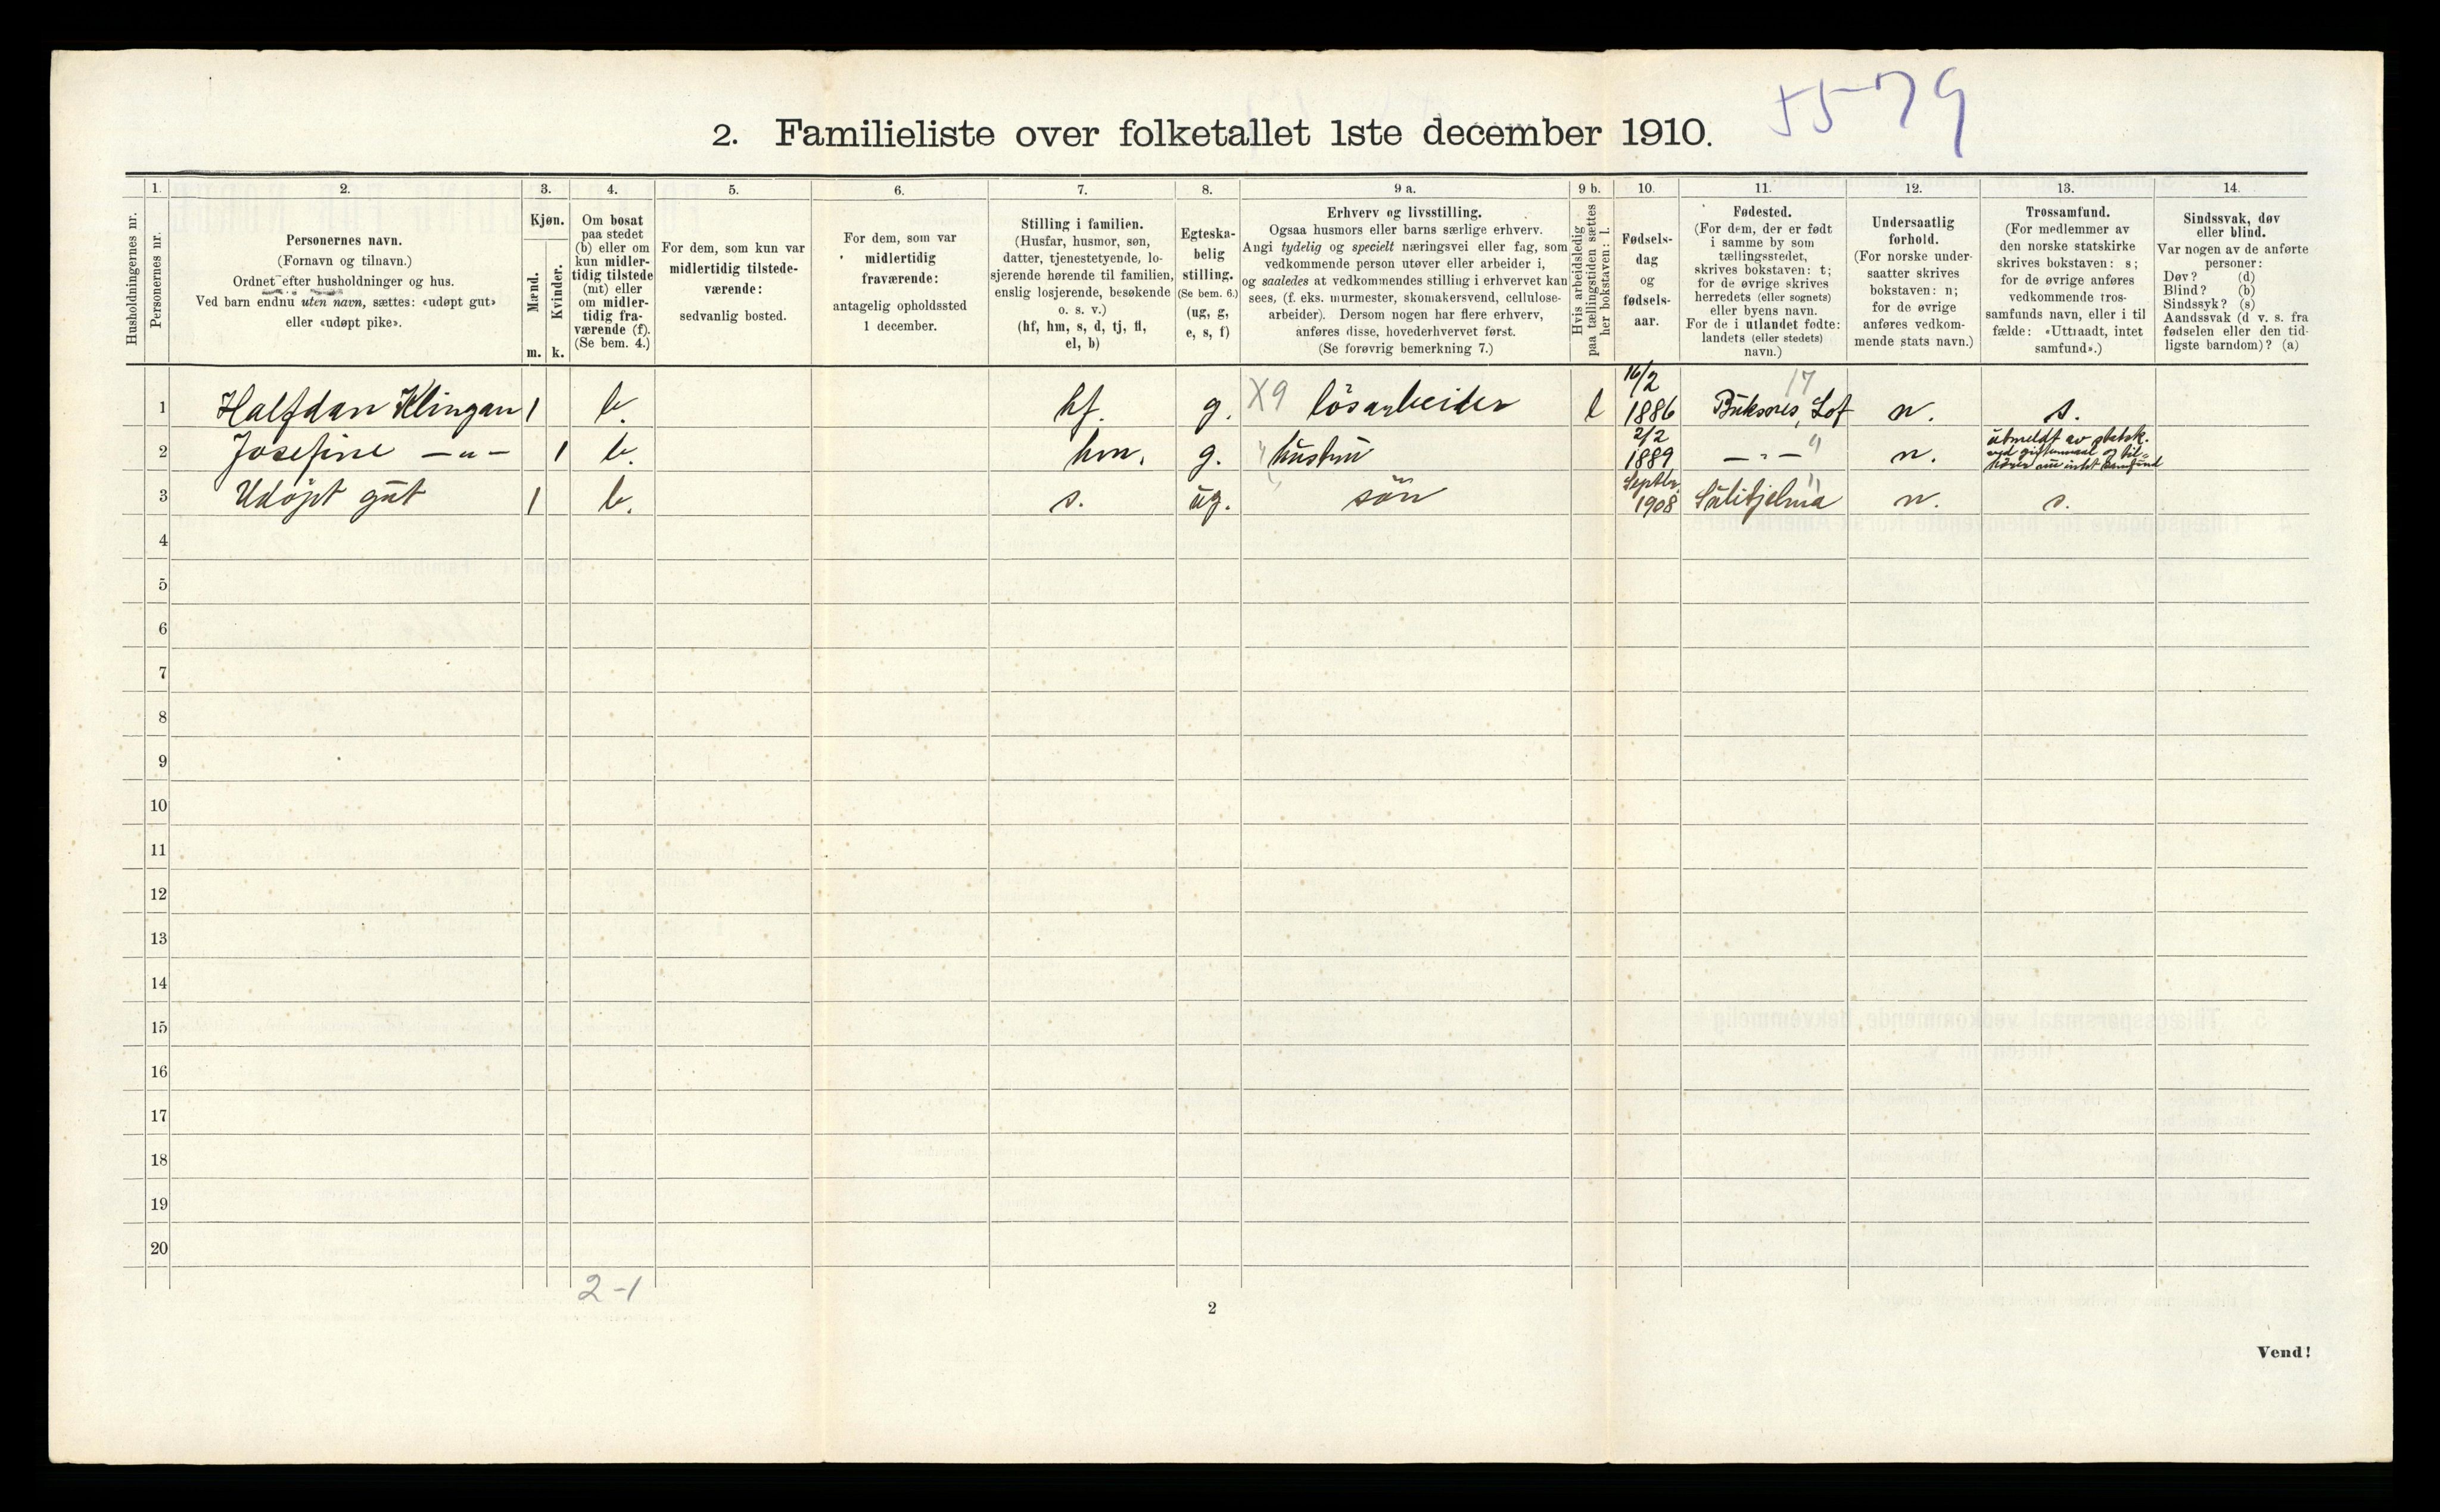 55-79
2. Familieliste over folketallet 1ste december 1910.
Husholdningernes nr.
1.
Personernes nr.
2.
Personernes navn.
(Fornavn og tilnavn.)
Ordnet efter husholdninger og hus.
Ved barn endnu uten navn, sættes: «udøpt gut»
eller «udøpt pike».
3.
Kjøn.
Mænd.
Kvinder.
m. k.
4.
Om bosat
paa stedet
(b) eller om
kun midler-
tidig tilstede
(mt) eller
om midler-
tidig fra-
værende (f).
(Se bem. 4.)
5.
For dem, som kun var
midlertidig tilstede-
værende:
sedvanlig bosted.
6.
For dem, som var
midlertidig
fraværende:
antagelig opholdssted
1 december.
7.
Stilling i familien.
(Husfar, husmor, søn,
datter, tjenestetyende, lo-
sjerende hørende til familien,
enslig losjerende, besøkende
o. s. v.)
(hf, hm, s, d, tj, fl,
el, b)
8.
Egteska-
belig
stilling.
(Se bem. 6.)
(ug, g,
e, s, f)
9 a.
Erhverv og livsstilling.
Ogsaa husmors eller barns særlige erhverv.
Angi tydelig og specielt næringsvei eller fag, som
vedkommende person utøver eller arbeider i,
og saaledes at vedkommendes stilling i erhvervet kan
sees, (f. eks. murmester, skomakersvend, cellulose-
arbeider). Dersom nogen har flere erhverv,
anføres disse, hovederhvervet først.
(Se forøvrig bemerkning 7.)
9 b.
Hvis arbeidsledig
paa tællingstiden sættes
her bokstaven: l.
10.
Fødsels-
dag
og
fødsels-
aar.
11.
Fødested.
(For dem, der er født
i samme by som
tællingsstedet,
skrives bokstaven: t;
for de øvrige skrives
herredets (eller sognets)
eller byens navn.
For de i utlandet fødte:
landets (eller stedets)
navn.)
12.
Undersaatlig
forhold.
(For norske under-
saatter skrives
bokstaven: n;
for de øvrige
anføres vedkom-
mende stats navn.)
13.
Trossamfund.
(For medlemmer av
den norske statskirke
skrives bokstaven: s;
for de øvrige anføres
vedkommende tros-
samfunds navn, eller i til
fælde: «Uttraadt, intet
samfund».)
14.
Sindssvak, døv
eller blind.
Var nogen av de anførte
personer:
Døv? (d)
Blind? (b)
Sindssyk? (s)
Aandssvak (d v. s. fra
fødselen eller den tid-
ligste barndom)? (a)
1 Halfdan Klingan 1 b. hf. g. X9 lösarbeider l 16/2 1886 Buksnes, Lof 17 n. s.
2 Josefine —„— 1 b. hm. g. „ hustru 2/2 1889 —„— „ n. utmeldt av statsk. ved giftermaal og til- hører nu intet samfund
3 Udöpt gut 1 b. s. ug. „ sön Septbr. 1908 Sulitjelma „ n. s.
4
5
6
7
8
9
10
11
12
13
14
15
16
17
18
19
20
2-1
2
Vend!